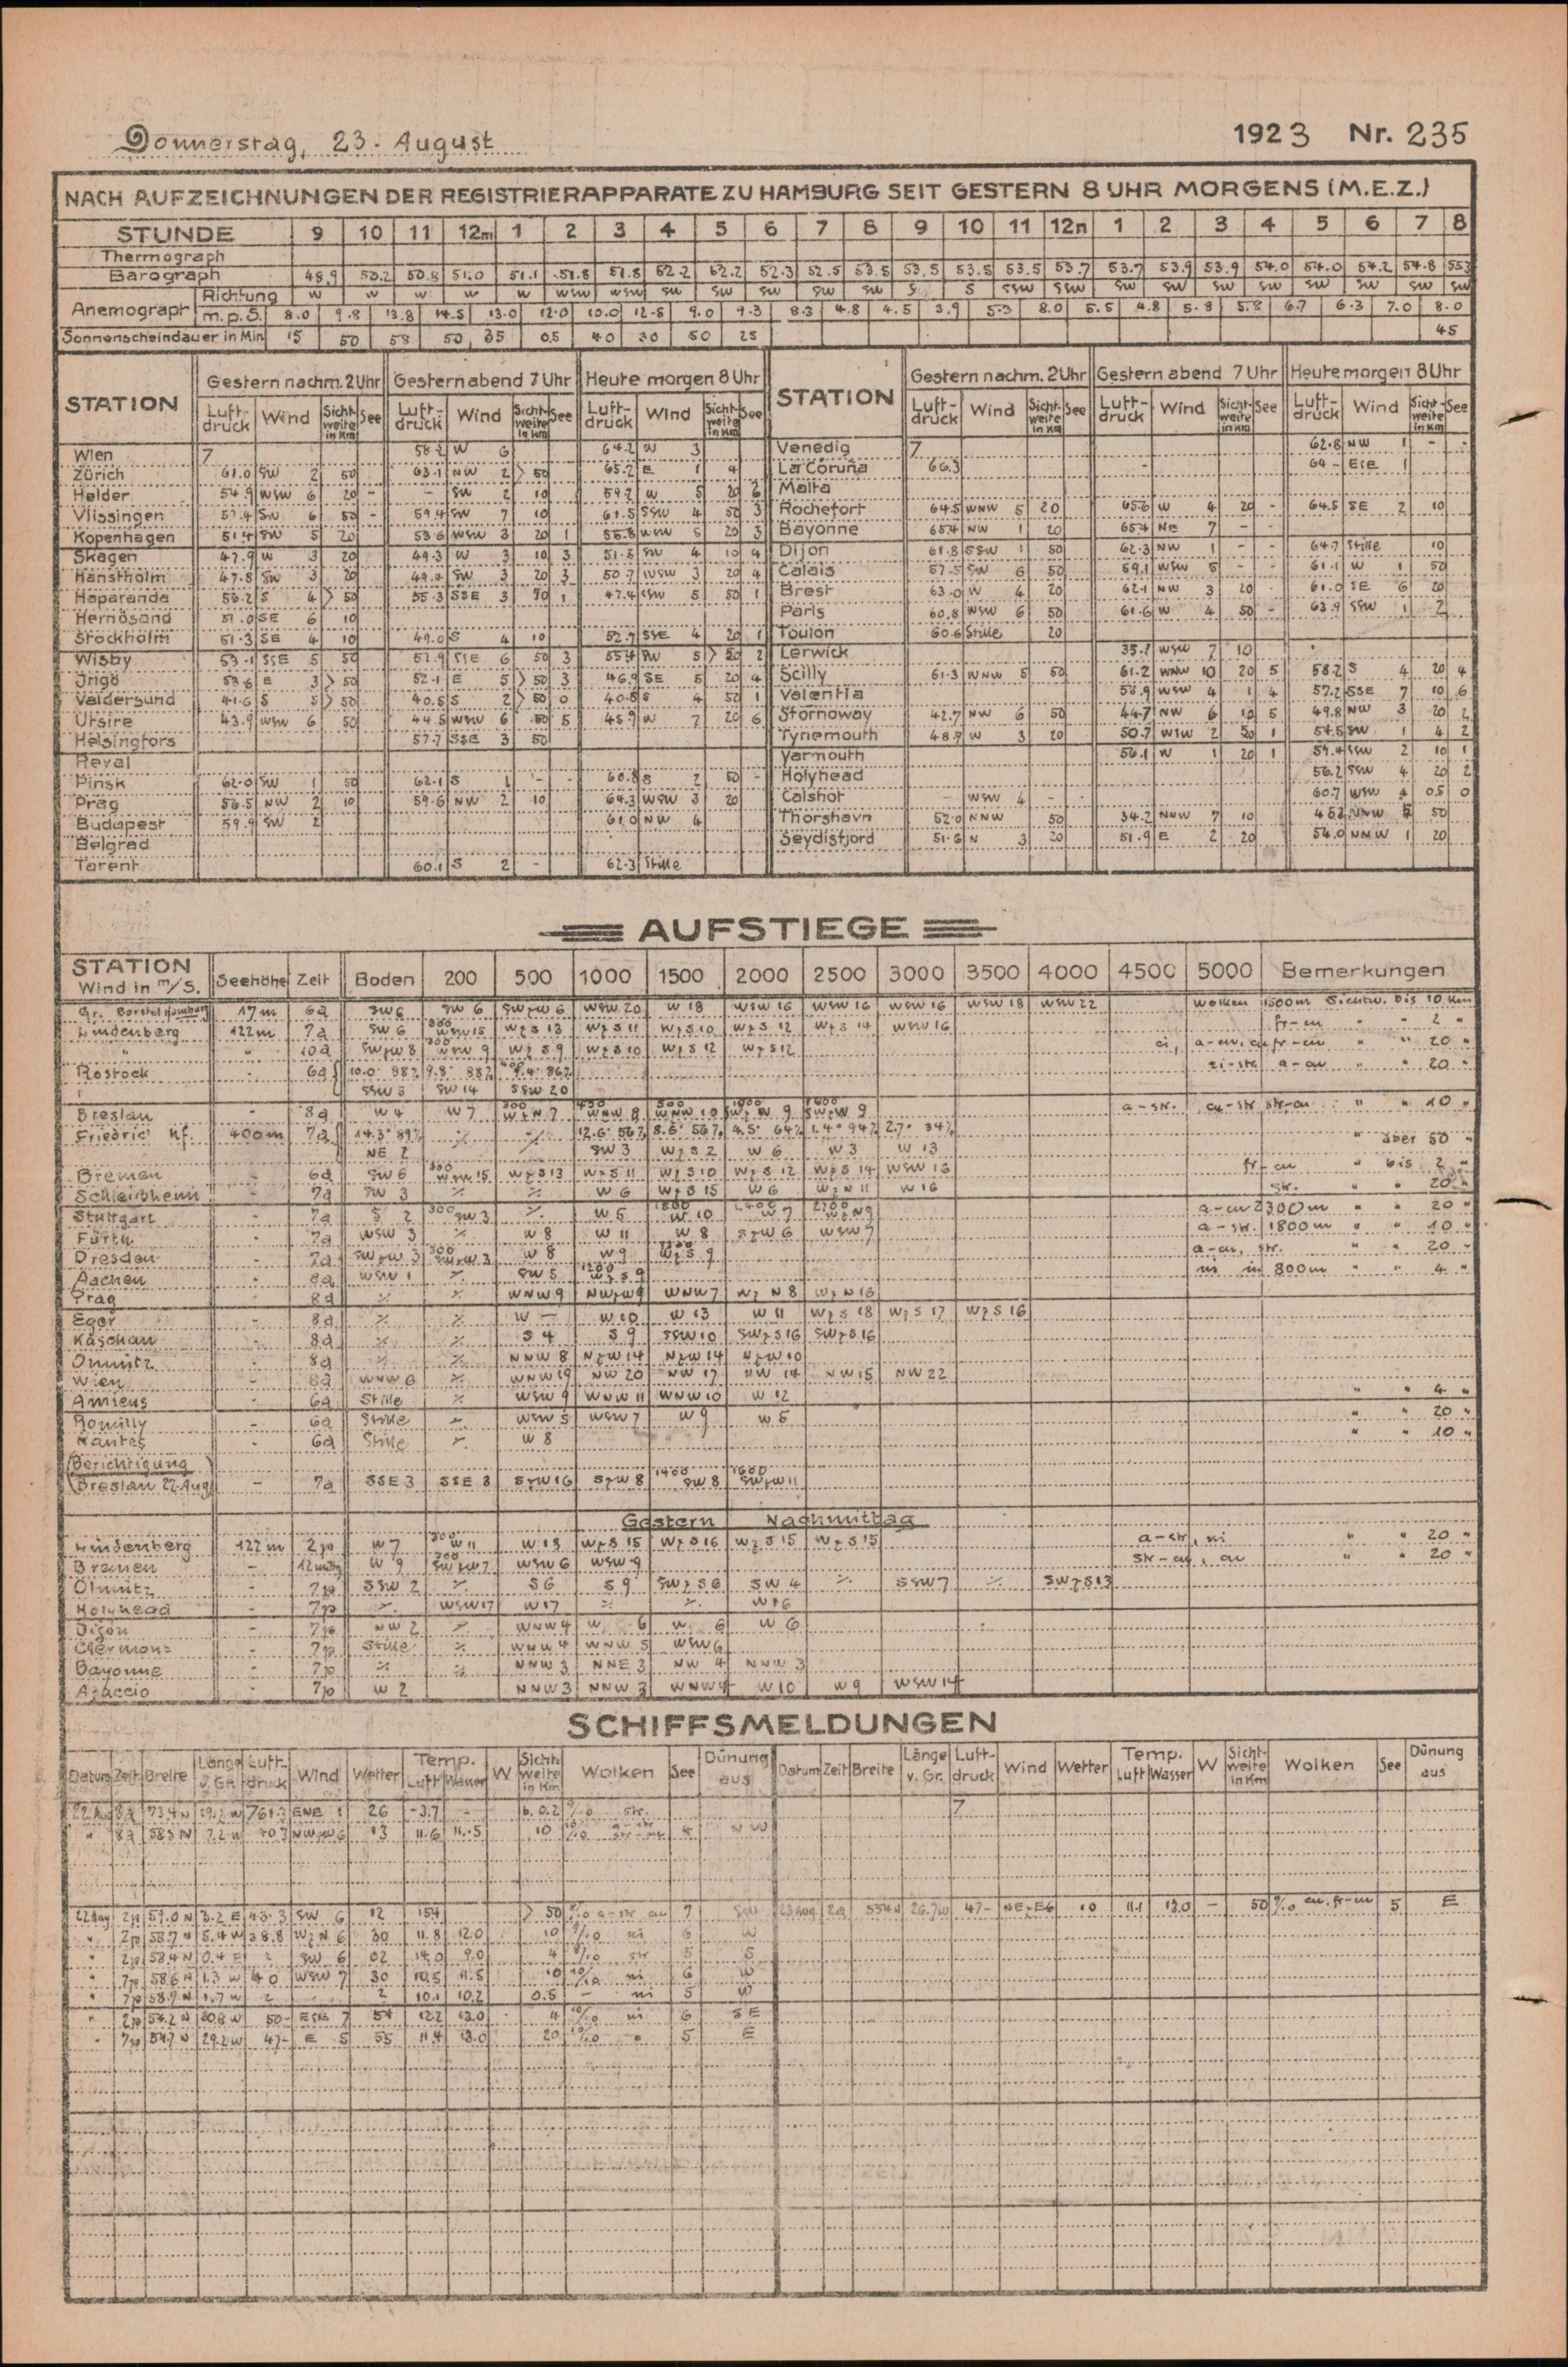 Donnerstag, 23. August 1923 Nr. 235
NACH AUFZEICHNUNGEN DER REGISTRIERAPPARATE ZU HAMBURG SEIT GESTERN 8 UHR MORGENS (M.E.Z.)
STUNDE 9 10 11 12m 1 2 3 4 5 6 7 8 9 10 11 12n 1 2 3 4 5 6 7 8
Thermograph
Barograph 48.9 50.2 50.8 51.0 51.1 51.8 51.8 52.2 52.2 52.3 52.5 53.5 53.5 53.5 53.5 53.7 53.7 53.9 53.9 54.0 54.0 54.2 54.8 553
Anemograph Richtung W W W W W WSW WSW SW SW SW SW SW S S SSW SSW SW SW SW SW SW SW SW SW
m.p.S. 8.0 9.8 13.8 14.5 13.0 12.0 10.0 12.5 9.0 9.3 8.3 4.8 4.5 3.9 5.3 8.0 5.5 4.8 5.8 5.8 6.7 6.3 7.0 8.0
Sonnenscheindauer in Min 15 50 58 50 35 05 40 30 50 25 45
STATION Gestern nachm. 2 Uhr Gestern abend 7 Uhr Heute morgen 8 Uhr STATION Gestern nachm. 2 Uhr Gestern abend 7 Uhr Heute morgen 8 Uhr
Luft-druck Wind Sicht-weite in Km See Luft-druck Wind Sicht-weite in Km See Luft-druck Wind Sicht-weite in Km See Luft-druck Wind Sicht-weite in Km See Luft-druck Wind Sicht-weite in Km See Luft-druck Wind Sicht-weite in Km See
Wien 7 58.2 W 6 64.2 W 3 Venedig 7 62.8 NW 1 - -
Zürich 61.0 SW 2 50 63.1 NW 2 > 50 65.2 E 1 4 La Coruña 66.3 - 64 - ESE 1
Helder 54.9 WSW 6 20 - - SW 2 10 59.2 W 5 20 6 Malta
Vlissingen 57.4 SW 6 50 - 59.4 SW 7 10 61.5 SSW 4 50 3 Rochefort 64.5 WNW 5 20 65.6 W 4 20 - 64.5 SE 2 10
Kopenhagen 51.4 SW 5 20 53.6 WSW 3 20 1 55.8 WNW 5 20 3 Bayonne 65.4 NW 1 20 65.4 NE 7 - -
Skagen 47.9 W 3 20 49.3 W 3 10 3 51.5 SW 4 10 4 Dijon 61.8 SSW 1 50 62.3 NW 1 - - 64.7 Stille 10
Hanstholm 47.8 SW 3 20 49.4 SW 3 20 3 50.7 WSW 3 20 4 Calais 57.5 SW 6 50 59.1 WSW 5 - - 61.1 W 1 50
Haparanda 56.2 S 4 > 50 55.3 SSE 3 50 1 47.4 SW 5 50 1 Brest 63.0 W 4 20 62.1 NW 3 20 61.0 SE 6 20
Hernösand 51.0 SE 6 10 Paris 60.8 WSW 6 50 61.6 W 4 50 - 63.9 SSW 1 2
Stockholm 51.3 SE 4 10 49.0 S 4 10 52.7 SSE 4 20 1 Toulon 60.6 Stille 20
Wisby 53.1 SSE 5 50 51.9 SSE 6 50 3 55.4 SW 5 > 50 2 Lerwick 35.7 WSW 7 10
53.6 E 3 > 50 52.1 E 5 > 50 3 46.9 SE 5 20 4 Scilly 61.3 WNW 5 50 61.2 WNW 10 20 5 58.2 S 4 20 4
Valdersund 41.6 S 5 > 50 40.5 S 2 > 50 0 40.8 S 4 50 1 Valentia 58.9 WSW 4 1 4 57.2 SSE 7 10 6
Utsire 43.9 WSW 6 50 44.5 WSW 6 50 5 45.9 W 7 20 6 Stornoway 42.7 NW 6 50 44.7 NW 6 10 5 49.8 NW 3 20 2
Helsingfors 57.7 SSE 3 50 Tynemouth 48.9 W 3 20 50.7 WSW 2 50 1 54.5 SW 1 4 2
Reval Yarmouth 56.1 W 1 20 1 59.4 SSW 2 10 1
Pinsk 62.0 SW 1 50 62.1 S 1 - - 60.8 S 2 50 - Holyhead 56.2 SSW 4 20 2
Prag 56.5 NW 2 10 59.6 NW 2 10 64.3 WSW 3 20 Calshot - WSW 4 - - 60.7 WSW 4 0.5 0
Budapest 59.9 SW 2 61.0 NW 4 Thorshavn 52.0 NNW 50 34.2 NNW 7 10 NNW 50
Belgrad Seydisfjord 51.6 N 3 20 51.9 E 2 20 54.0 NNW 1 20
Tarent 60.1 S 2 - 62.3 Stille
AUFSTIEGE
STATION Wind in m/S. Seehöhe Zeit Boden 200 500 1000 1500 2000 2500 3000 3500 4000 4500 5000 Bemerkungen
Gr. Borstel Hamburg 17 m 6a SW6 SW 6 SWzW 6 WSW 20 W 18 WSW 16 WSW 16 WSW 16 WSW 18 WSW 22 Wolken 1500m Sichtw. bis 10 Km
Lindenberg 122 m 7a SW 6 300 WSW 15 WzS 13 WzS 11 WzS 10 WzS 12 WzS 14 WSW 16 fr-cu " " 2 "
" " 10a SWzW 8 300 WSW 9 WzS 9 WzS 10 WzS 12 WzS 12 ci, a-cu, cu fr-cu " " 20 "
Rostock - 6a 10.0° 88% 9.8° 88% 9.4° 86% ci-str. a-cu " " 20 "
SSW 5 SW 14 SSW 20
Breslau - 8a W 4 W 7 300 WzN 7 WNW 8 WNW 10 SWzW 9 SWzW 9 a-str. cu-str str-cu " " 10 "
Friedrichshf. 400 m 7a 14.3° 89% ·/. ·/. 12.6° 56% 8.6° 56% 4.5° 64% 1.4° 94% 2.7° 34% " über 50 "
NE 2 SW 3 WzS 2 W 6 W 3 W 13
Bremen - 6a SW 6 300 WSW 15 WzS 13 WzS 11 WzS 10 WzS 12 WzS 14 WSW 16 fr-cu " bis 2 "
Schleißheim - 7a SW 3 ·/. ·/. W 6 WzS 15 W 6 WzN 11 W 16 str. " " 20 "
Stuttgart - 7a S 2 300 SW 3 ·/. W 5 1800 W 10 2400 W 7 2700 WzN 9 a-cu 2300m " " 20 "
Fürth - 7a WSW 3 ·/. W 8 W 11 W 8 SzW 6 WSW 7 a-str. 1800m " " 10 "
Dresden - 7a SWzW 3 300 SWzW 3 W 8 W 9 WzS 9 a-cu, str. " " 20 "
Aachen - 8a WSW 1 ·/. SW 5 1200 WzS 9 ni in 800m " " 4 "
Prag - 8a ·/. ·/. WNW 9 NWzW 9 WNW 7 WzN 8 WzN 16
Eger - 8a ·/. ·/. W — W 10 W 13 W 11 WzS 18 WzS 17 WzS 16
Kaschau - 8a ·/. ·/. S 4 S 9 SSW 10 SWzS 16 SWzS 16
8a ·/. ·/. NNW 8 NzW 14 NzW 14 NzW 10
Wien - 8a WNW 6 ·/. WNW 19 NW 20 NW 17 NW 14 NW 15 NW 22
Amiens - 6a Stille ·/. WSW 9 WNW 11 WNW 10 W 12 " " 4 "
Romilly - 6a Stille ·/. WSW 5 WSW 7 W 9 W 5 " " 20 "
Nantes - 6a Stille ·/. W 8 " " 10 "
(Berichtigung)
(Breslau 22. Aug) - 7a SSE 3 SSE 8 SzW 16 SzW 8 1400 SW 8 1600 SWzW 11
Gestern Nachmittag
Lindenberg 122 m 2p W 7 300 W 11 W 13 WzS 15 WzS 16 WzS 15 WzS 15 a-str, ni " " 20 "
Bremen - 12 mittg W 9 300 SWzW 7 WSW 6 WSW 9 str-cu, cu " " 20 "
Olmütz - 7p SSW 2 ·/. S 6 S 9 SWzS 6 SW 4 ·/. SSW 7 ·/. SWzS 13
Holyhead - 7p ·/. WSW 17 W 17 ·/. ·/. W 16
Dijon - 7p NW 2 ·/. WNW 4 W 6 W 6 W 6
Clermont - 7p Stille ·/. WNW 4 WNW 5 WSW 6
Bayonne - 7p ·/. ·/. NNW 3 NNE 3 NW 4 NNW 3
Ajaccio - 7p W 2 NNW 3 NNW 3 WNW 4 W 10 W 9 WSW 14
SCHIFFSMELDUNGEN
Datum Zeit Breite Länge v. Gr. Luft-druck Wind Wetter Temp. Luft Wasser W Sicht-weite in Km Wolken See Dünung aus Datum Zeit Breite Länge v. Gr. Luft-druck Wind Wetter Temp. Luft Wasser W Sicht-weite in Km Wolken See Dünung aus
22 Aug 8a 73.4 N 19.2 W 761.3 ENE 1 26 -3.7 - 6. 0.2 str. 7
" 8a 58.5 N 7.2 W 40.3 NWzW 6 13 11.6 11.5 10 a-str str-cu 4 NW
22 Aug 2p 59.0 N 3.2 E 43.3 SW 6 12 15.4 > 50 a-str cu 7 SW 23 Aug. 2a 55.4 N 26.7 W 47- NEzE 6 10 11.1 13.0 - 50 cu. fr-cu 5 E
" 2p 58.7 N 5.4 W 38.8 WzN 6 30 11.8 12.0 10 ni 6 W
" 2p 58.4 N 0.4 E 2 SW 6 02 14.0 9.0 4 str 5 S
" 7p 58.6 N 1.3 W 40 WSW 7 30 10.5 11.5 10 ni 6 W
" 7p 58.9 N 1.7 W 2 2 10.1 10.2 0.5 - ni 5 W
" 2p 54.2 N 30.8 W 50- ESE 7 54 12.2 13.0 4 10/10 ni 6 SE
" 7p 54.7 N 29.2 W 47- E 5 55 11.4 13.0 20 10/10 5 E